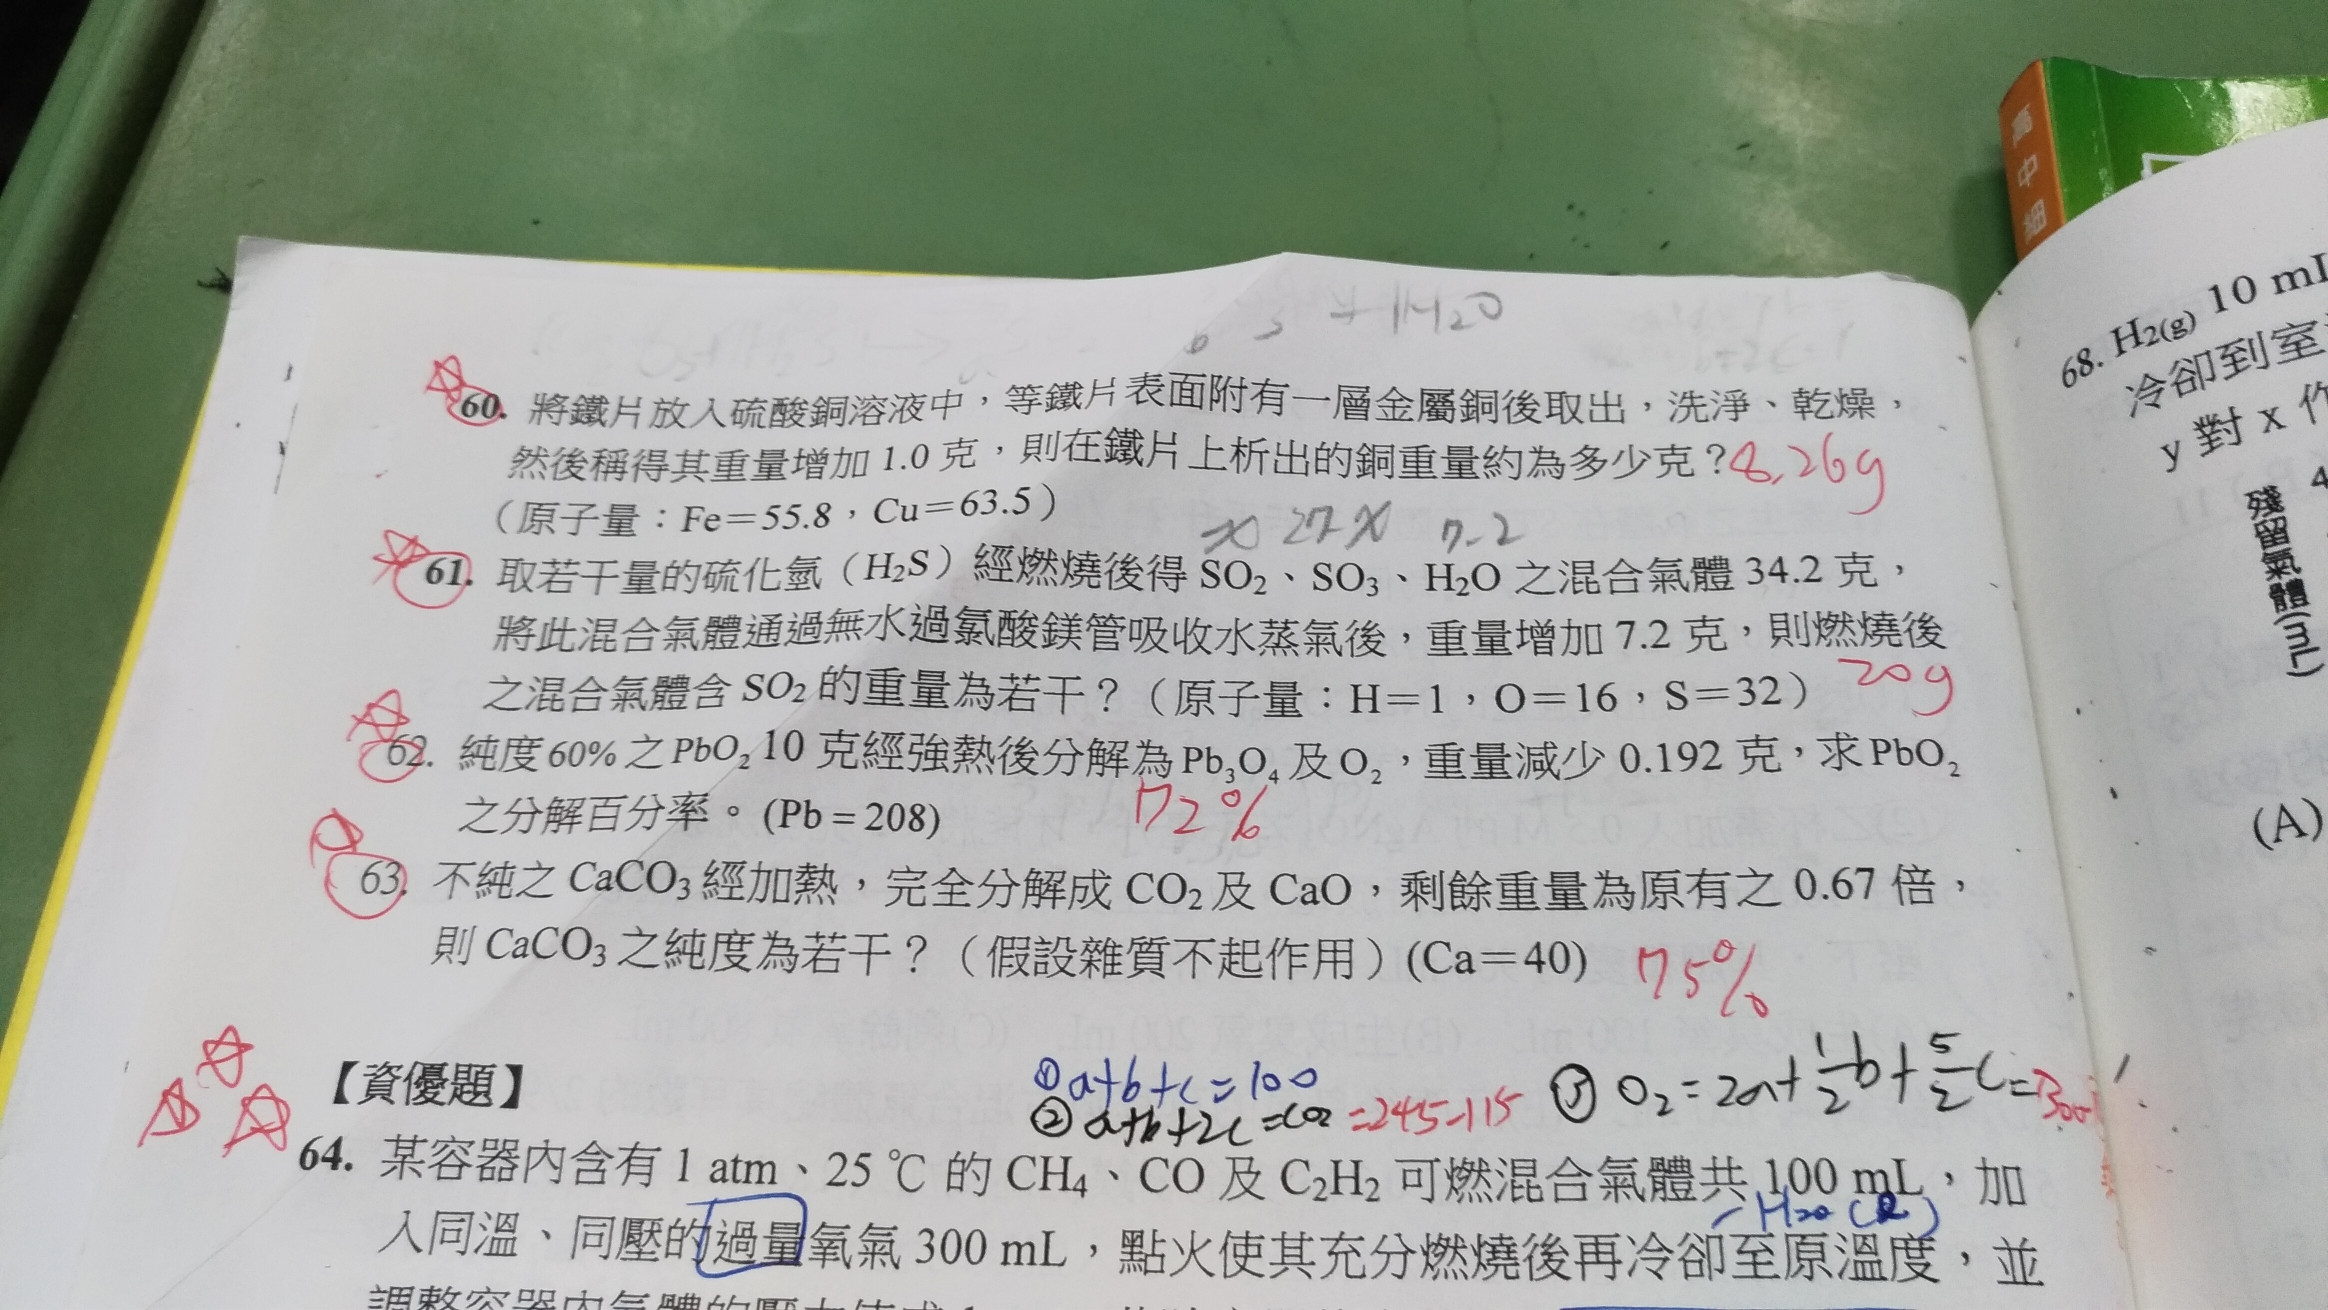 + H2O
60. 將鐵片放入硫酸銅溶液中，等鐵片表面附有一層金屬銅後取出，洗淨、乾燥，
然後稱得其重量增加 1.0 克，則在鐵片上析出的銅重量約為多少克？8.26g
（原子量：Fe＝55.8，Cu＝63.5）
x 27 x 7.2
61. 取若干量的硫化氫（H2S）經燃燒後得 SO2、SO3、H2O 之混合氣體 34.2 克，
將此混合氣體通過無水過氯酸鎂管吸收水蒸氣後，重量增加 7.2 克，則燃燒後
之混合氣體含 SO2 的重量為若干？（原子量：H＝1，O＝16，S＝32） 20g
62. 純度 60% 之 PbO2 10 克經強熱後分解為 Pb3O4 及 O2，重量減少 0.192 克，求 PbO2
之分解百分率。(Pb = 208) 72%
63. 不純之 CaCO3 經加熱，完全分解成 CO2 及 CaO，剩餘重量為原有之 0.67 倍，
則 CaCO3 之純度為若干？（假設雜質不起作用）(Ca＝40) 75%
【資優題】
① a+b+c=100
② a+b+2c=CO2=245-115
③ O2=2a+1/2b+5/2c=
64. 某容器內含有 1 atm、25 ℃ 的 CH4、CO 及 C2H2 可燃混合氣體共 100 mL，加
-H2O(l)
入同溫、同壓的過量氧氣 300 mL，點火使其充分燃燒後再冷卻至原溫度，並
調整容器內氣體的壓力使成
高中
68. H2(g) 10 mL
冷卻到室
y 對 x 作
殘留氣體(mL)
4
(A)